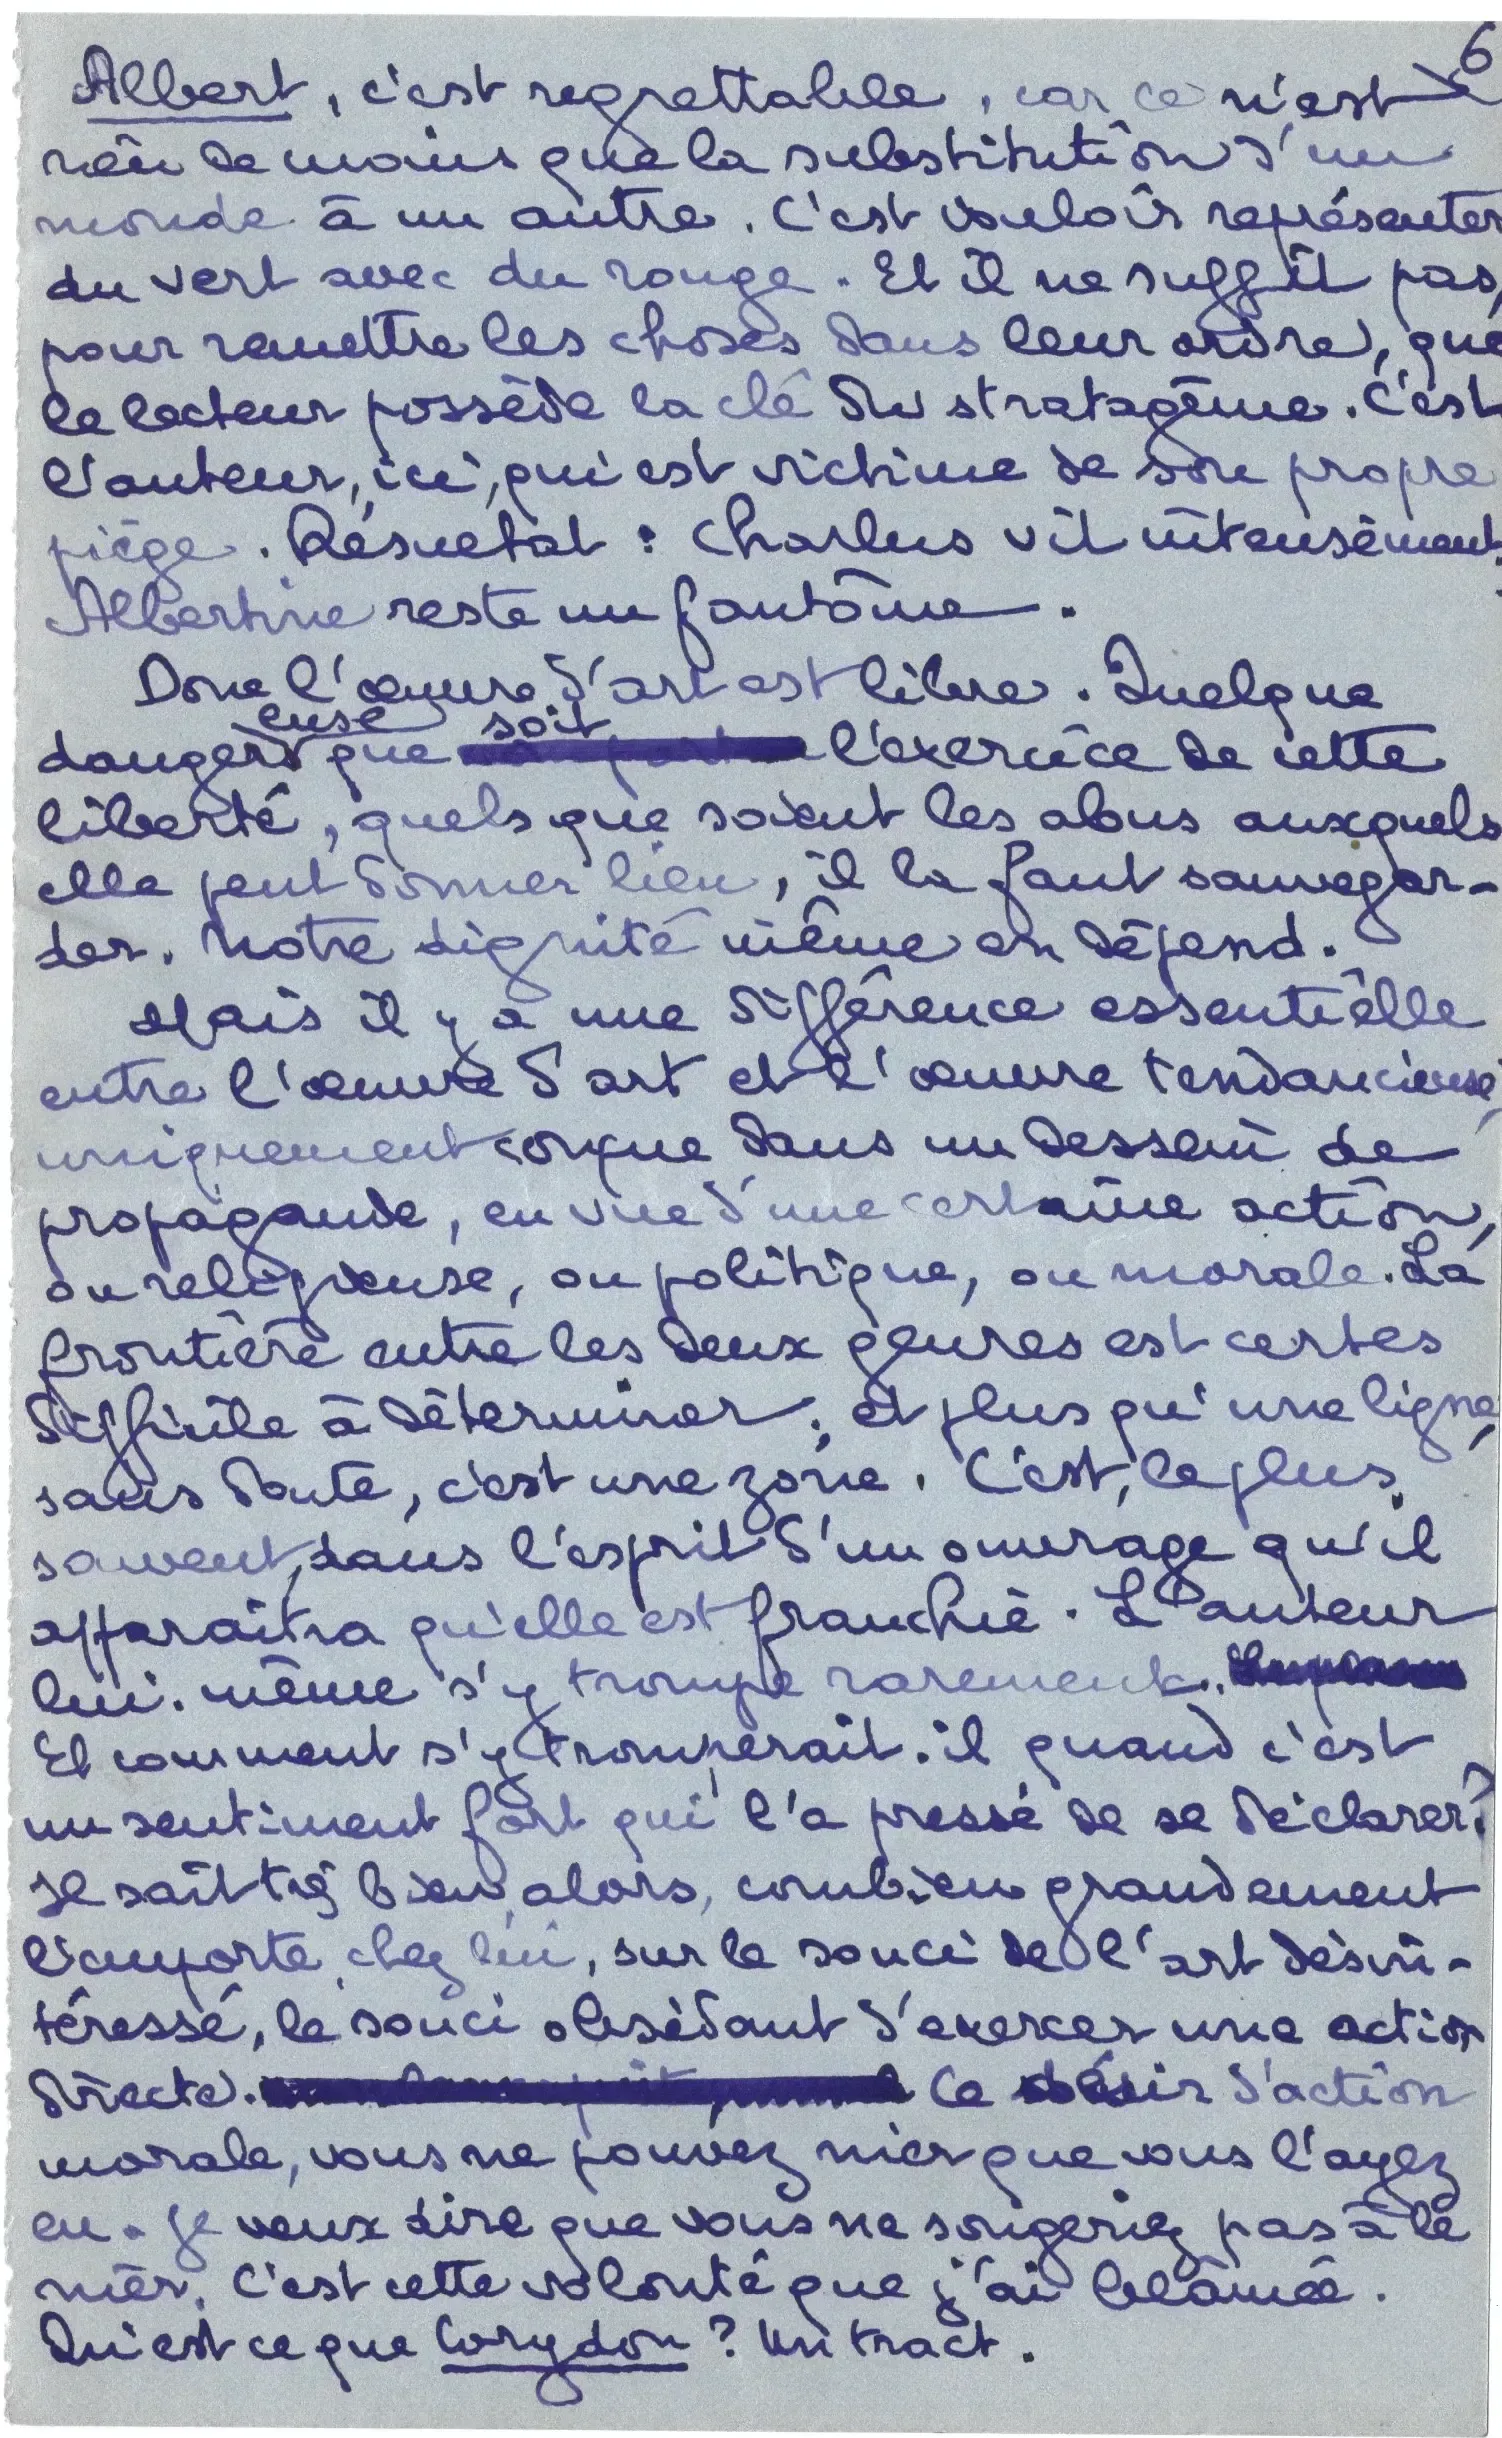 6
Albert, c'est regrettable, car ce n'est
rien de moins que la substitution d'un
monde à un autre. C'est vouloir représenter
du vert avec du rouge. Et il ne suffit pas,
pour remettre les choses dans leur ordre, que
le lecteur possède la clé du stratagème. C'est
l'auteur, ici, qui est victime de son propre
piège. Résultat : Charlus vit intensément.
Albertine reste un fantôme.
Donc l'œuvre d'art est libre. Quelque
dangereuse que soit l'exercice de cette
liberté, quels que soient les abus auxquels
elle peut donner lieu, il la faut sauvegar-
der. Notre dignité même en dépend.
Mais il y a une différence essentielle
entre l'œuvre d'art et l'œuvre tendancieuse,
uniquement conçue dans un dessein de
propagande, en vue d'une certaine action,
ou religieuse, ou politique, ou morale. La
frontière entre les deux genres est certes
difficile à déterminer ; et plus qu'une ligne,
sans doute, c'est une zone. C'est, le plus
souvent, dans l'esprit d'un ouvrage qu'il
apparaîtra qu'elle est franchie. L'auteur
lui-même s'y trompe rarement.
Et comment s'y tromperait-il quand c'est
un sentiment fort qui l'a pressé de se déclarer ?
Il sait très bien, alors, combien grandement
l'emporte, chez lui, sur le souci de l'art désin-
téressé, le souci obsédant d'exercer une action
directe. Ce désir d'action
morale, vous ne pouvez nier que vous l'ayez
eu. Je veux dire que vous ne songeriez pas à le
nier. C'est cette volonté que j'ai blâmée.
Qu'est ce que Corydon ? Un tract.